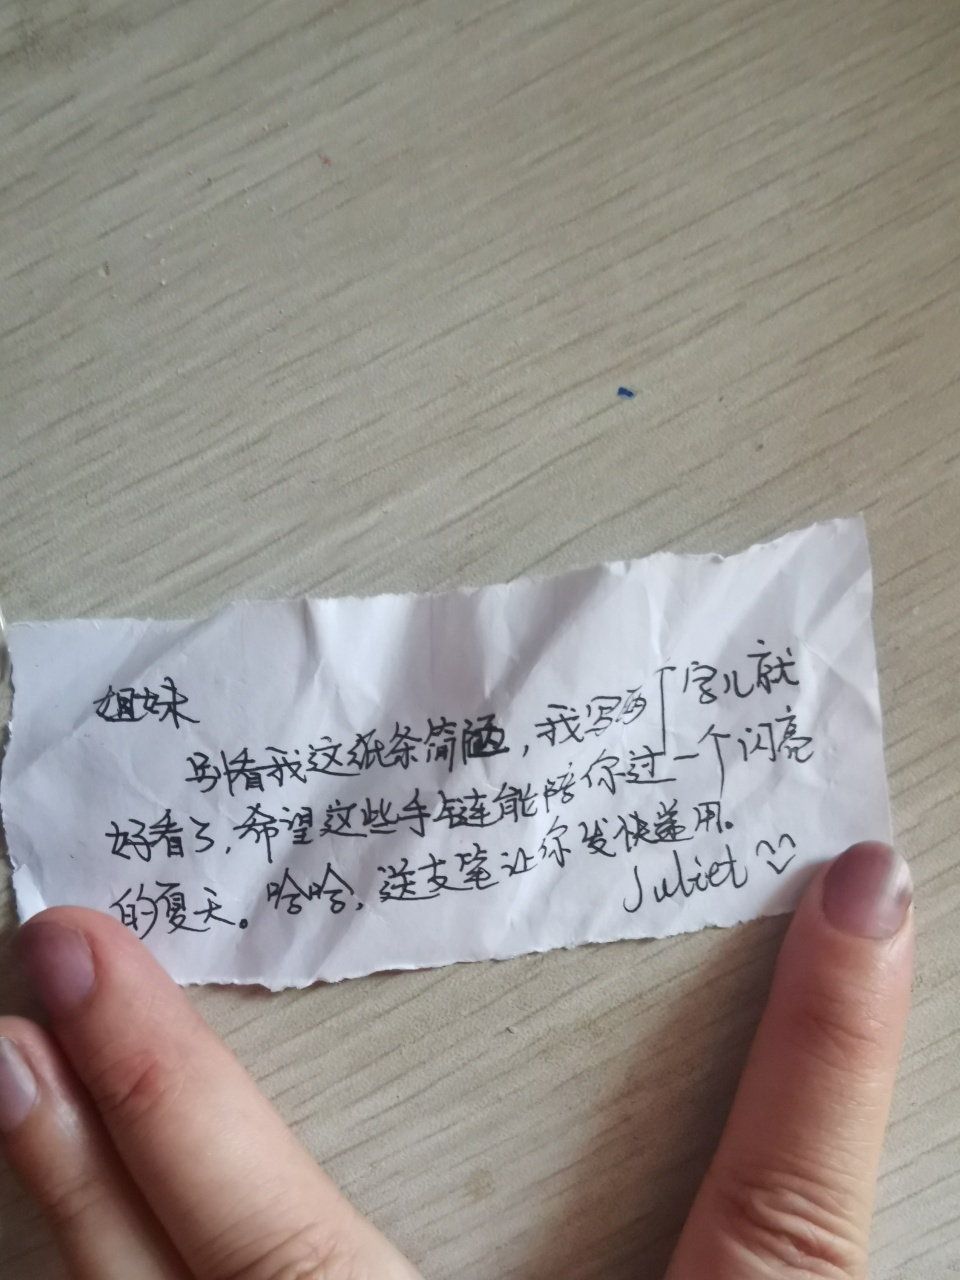 姐妹
别看我这纸条简陋,我写两个字儿就
好看了,希望这些手链能陪你过一个闪亮
的夏天。哈哈,送支笔让你发快递用。
Juliet